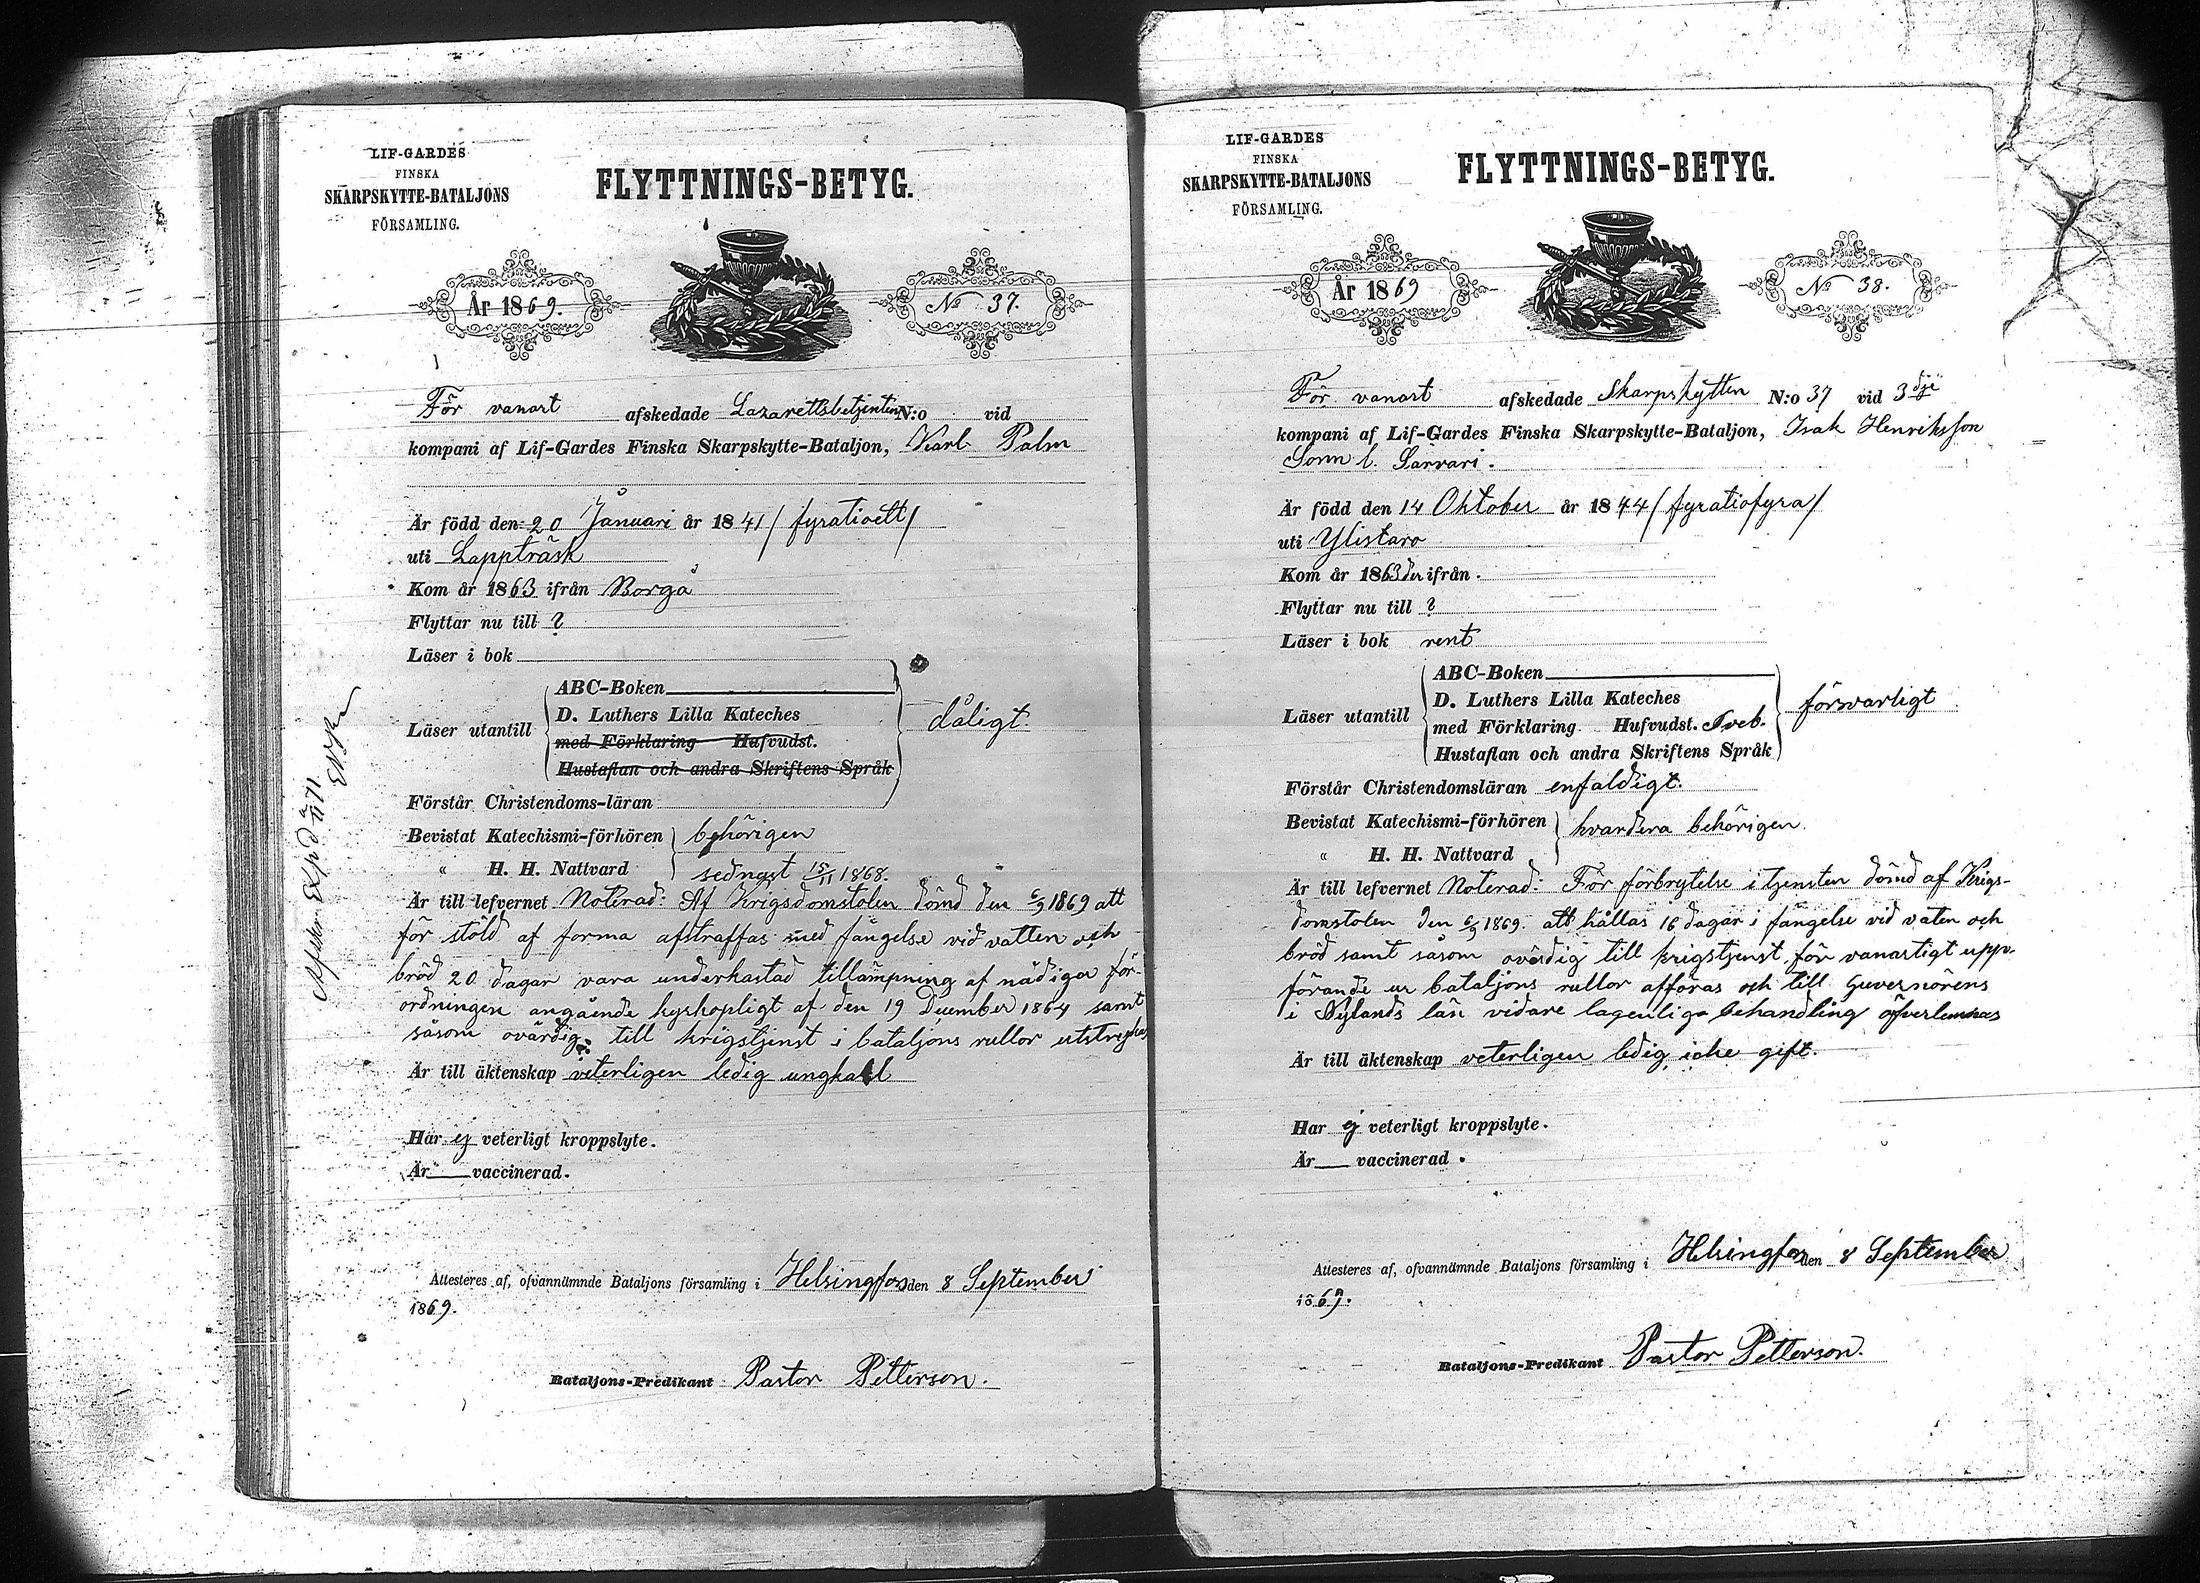 LIF-GARDES
FINSKA
SKARPSKYTTE-BATALJONS
FÖRSAMLING.
FLYTTNINGS-BETYG.
År 1869.
No 37.
För vanart afskedade Lazarettsbetjenten N:o vid
kompani af Lif-Gardes Finska Skarpskytte-Bataljon, Karl Palm
Är född den 20 Januari år 1841 / fyratioett /
uti Lappträsk
Kom år 1863 ifrån Borgå
Flyttar nu till ?
Läser i bok
Läser utantill
ABC-Boken
D. Luthers Lilla Kateches
med Förklaring Hufvudst.
Hustaflan och andra Skriftens Språk
dåligt.
Förstår Christendoms-läran
Bevistat Katechismi-förhören behörigen
" H. H. Nattvard sednast 15/11 1868.
Är till lefvernet Noterad: Af Krigsdomstolen dömd den 6/9 1869 att
för stöld af forma afstraffas med fängelse vid vatten och
bröd 20 dagar vara underkastad tillämpning af nådiga för-
ordningen angående hyskopligt af den 19 December 1864 samt
såsom ovärdig till krigstjenst i bataljons rullor utstrykas
Är till äktenskap veterligen ledig ungkarl
Har ej veterligt kroppslyte.
Är vaccinerad.
Attesteres af, ofvannämnde Bataljons församling i Helsingfors den 8 September
1869.
Bataljons-Predikant Pastor Petterson.
LIF-GARDES
FINSKA
SKARPSKYTTE-BATALJONS
FÖRSAMLING.
FLYTTNINGS-BETYG.
År 1869
No 38.
För vanart afskedade Skarpskytten N:o 37 vid 3dje
kompani af Lif-Gardes Finska Skarpskytte-Bataljon, Isak Henriksson
Sorvari.
Är född den 14 Oktober år 1844 / fyratiofyra /
uti Ylistaro
Kom år 1863 ifrån
Flyttar nu till ?
Läser i bok rent
Läser utantill
ABC-Boken
D. Luthers Lilla Kateches
med Förklaring Hufvudst. Sveb.
Hustaflan och andra Skriftens Språk
försvarligt
Förstår Christendomsläran enfaldigt.
Bevistat Katechismi-förhören hvardera behörigen.
" H. H. Nattvard
Är till lefvernet Noterad: För förbrytelse i tjensten dömd af Krigs-
domstolen den 6/9 1869. att hållas 16 dagar i fängelse vid vaten och
bröd samt såsom ovärdig till krigstjenst, för vanartigt upp-
förande ur bataljons rullor afföras och till Guvernörens
i Nylands län vidare lagenliga behandling öfverlemnas
Är till äktenskap veterligen ledig, icke gift.
Har ej veterligt kroppslyte.
Är vaccinerad.
Attesteres af, ofvannämnde Bataljons församling i Helsingfors den 8 September
1869.
Bataljons-Predikant Pastor Petterson.